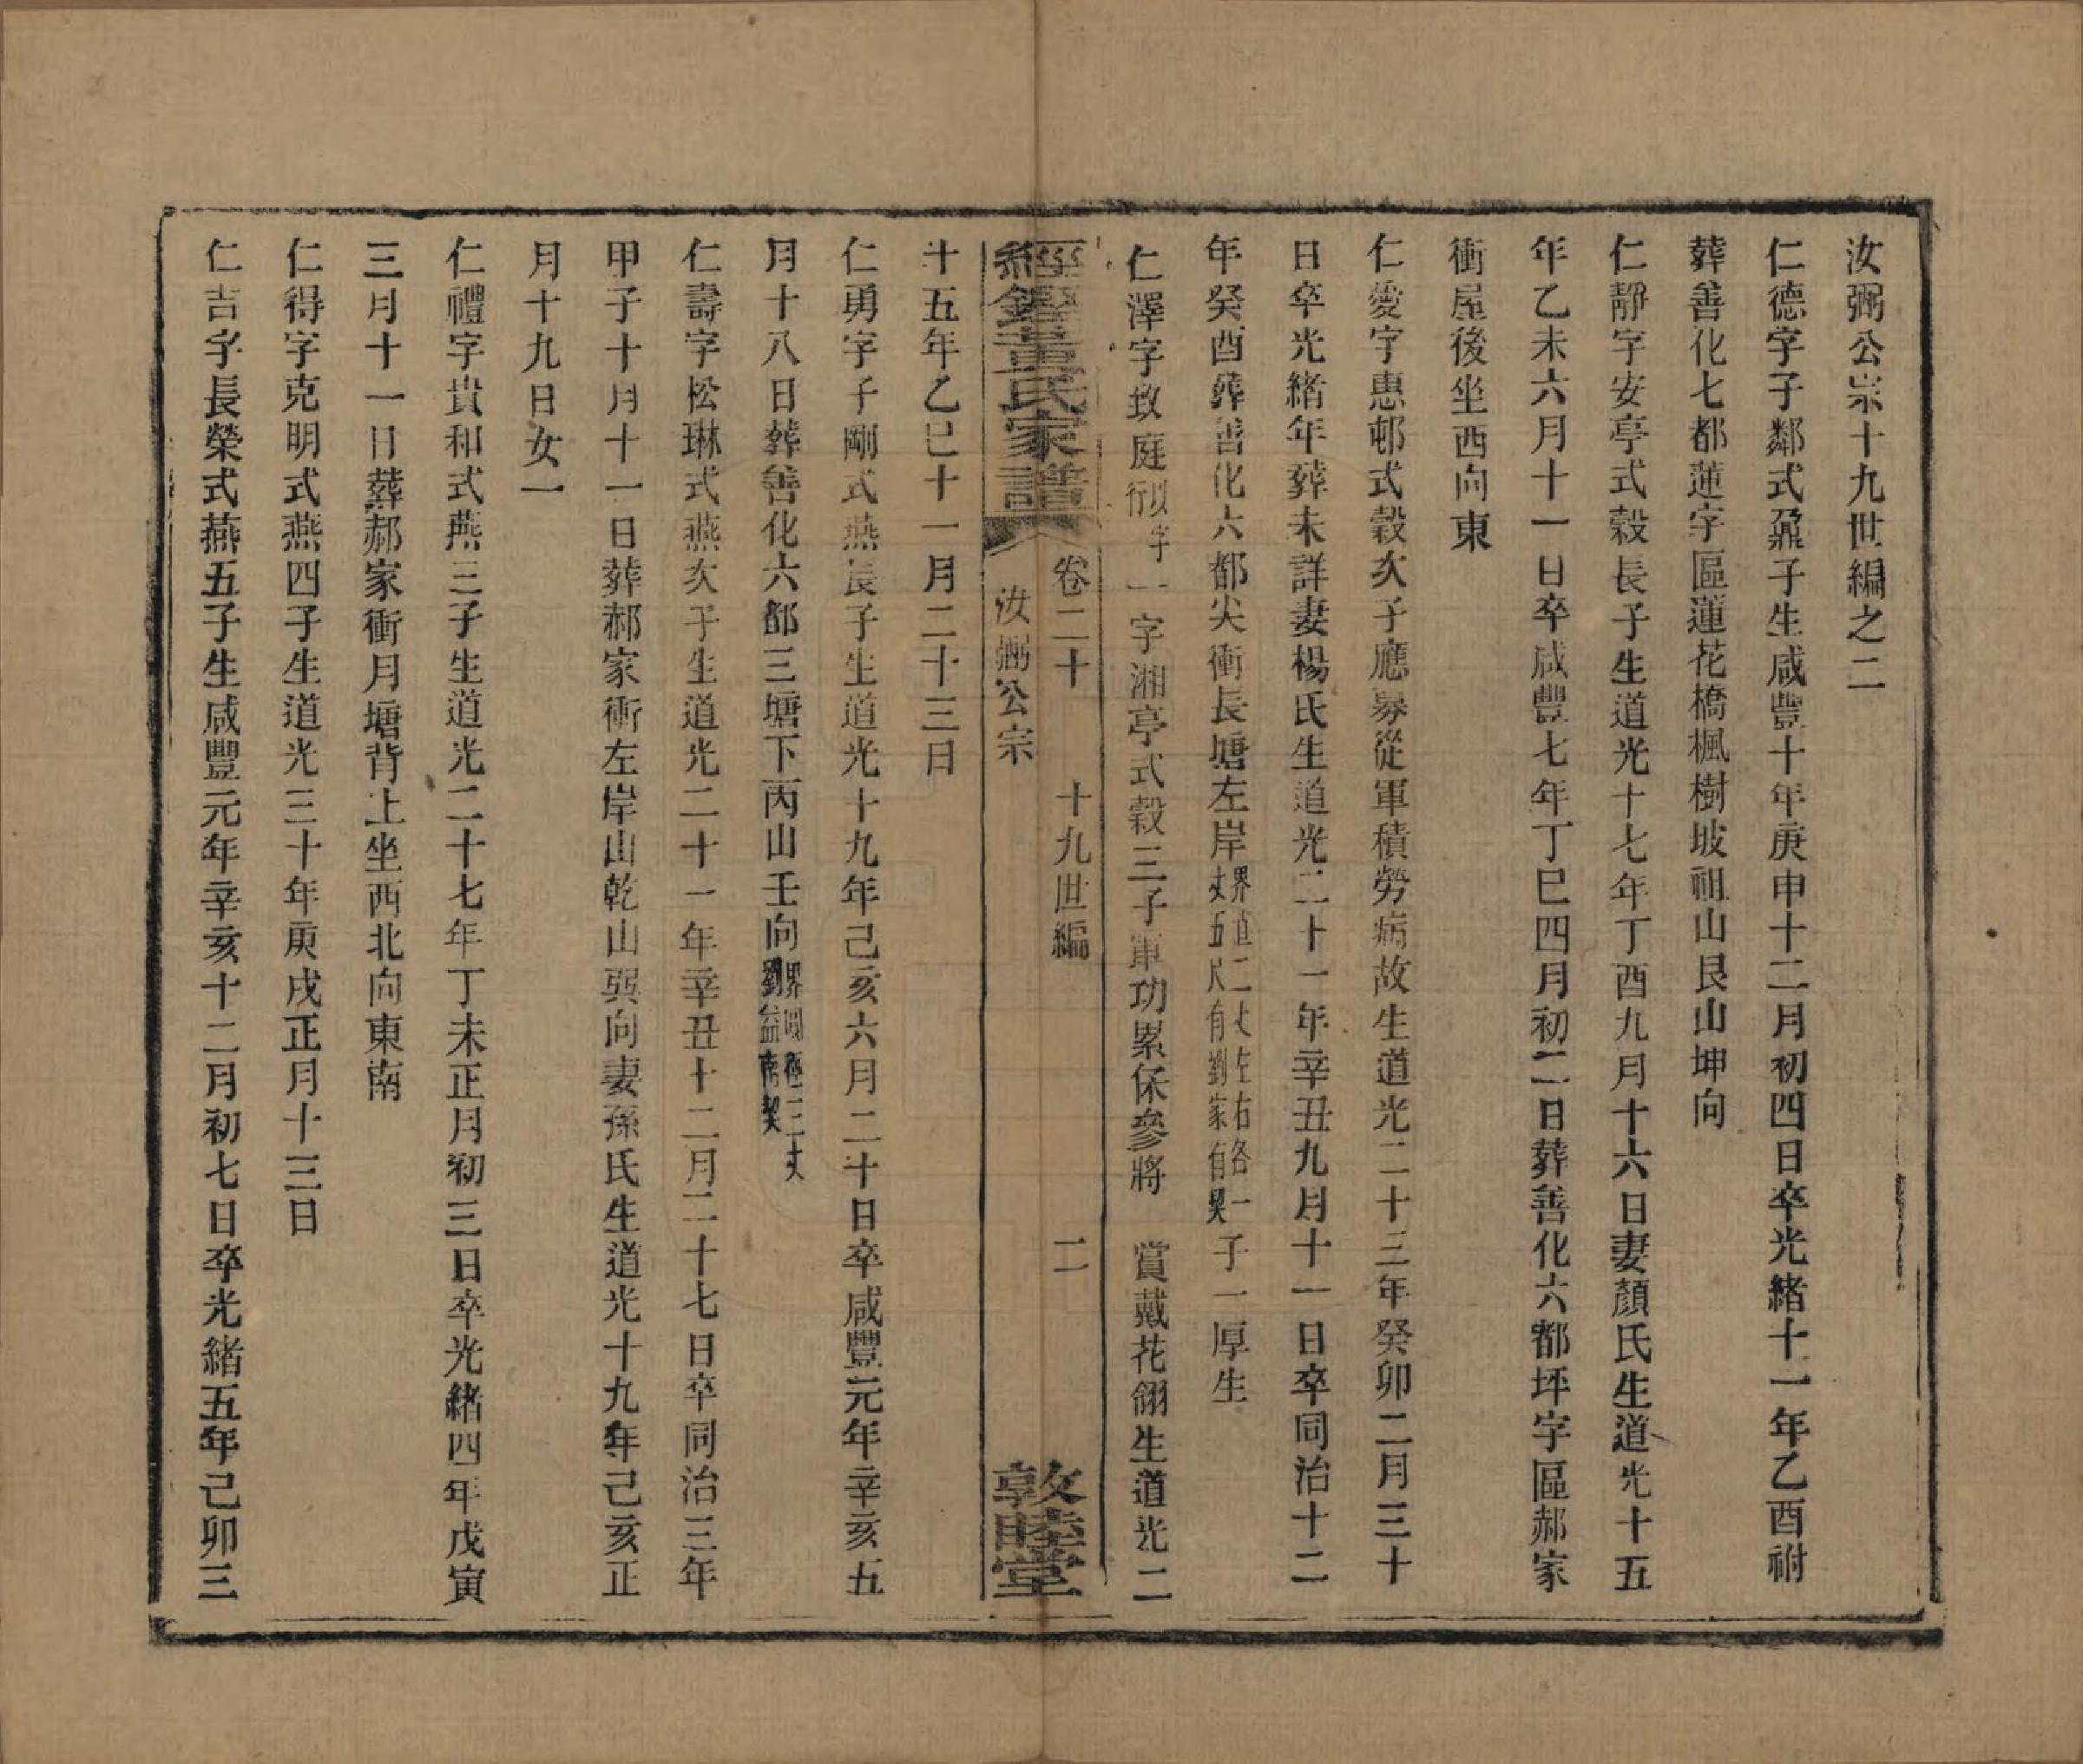 汝弼公宗十九世編之二
仁德字子鄰式鼐子生咸豐十年庚申十二月初四日卒光緒十一年乙酉祔
葬善化七都蓮字區蓮花橋楓樹坡祖山艮山坤向
仁靜字安亭式穀長子生道光十七年丁酉九月十六日妻顏氏生道光十五
年乙未六月十一日卒咸豐七年丁巳四月初二日葬善化六都坪字區郝家
衝屋後坐西向東
仁愛字惠邨式穀次子應募從軍積勞病故生道光二十三年癸卯二月三十
日卒光緒年葬未詳妻楊氏生道光二十一年辛丑九月十一日卒同治十二
年癸酉葬善化六都尖衝長塘左岸界直二丈左右各一丈五尺有劉家有契子一厚生
仁澤字致庭行以字一字湘亭式穀三子軍功累保參將 賞戴花翎生道光二
經鏗董氏家譜 卷二十 汝弼公宗 十九世編 二 敦睦堂
十五年乙巳十一月二十三日
仁勇字子剛式燕長子生道光十九年己亥六月二十日卒咸豐元年辛亥五
月十八日葬善化六都三塘下丙山壬向界圓徑三丈劉益南契
仁壽字松琳式燕次子生道光二十一年辛丑十二月二十七日卒同治三年
甲子十月十一日葬郝家衝左岸山乾山巽向妻孫氏生道光十九年己亥正
月十九日女一
仁禮字貴和式燕三子生道光二十七年丁未正月初三日卒光緒四年戊寅
三月十一日葬郝家衝月塘背上坐西北向東南
仁得字克明式燕四子生道光三十年庚戌正月十三日
仁吉字長榮式燕五子生咸豐元年辛亥十二月初七日卒光緒五年己卯三